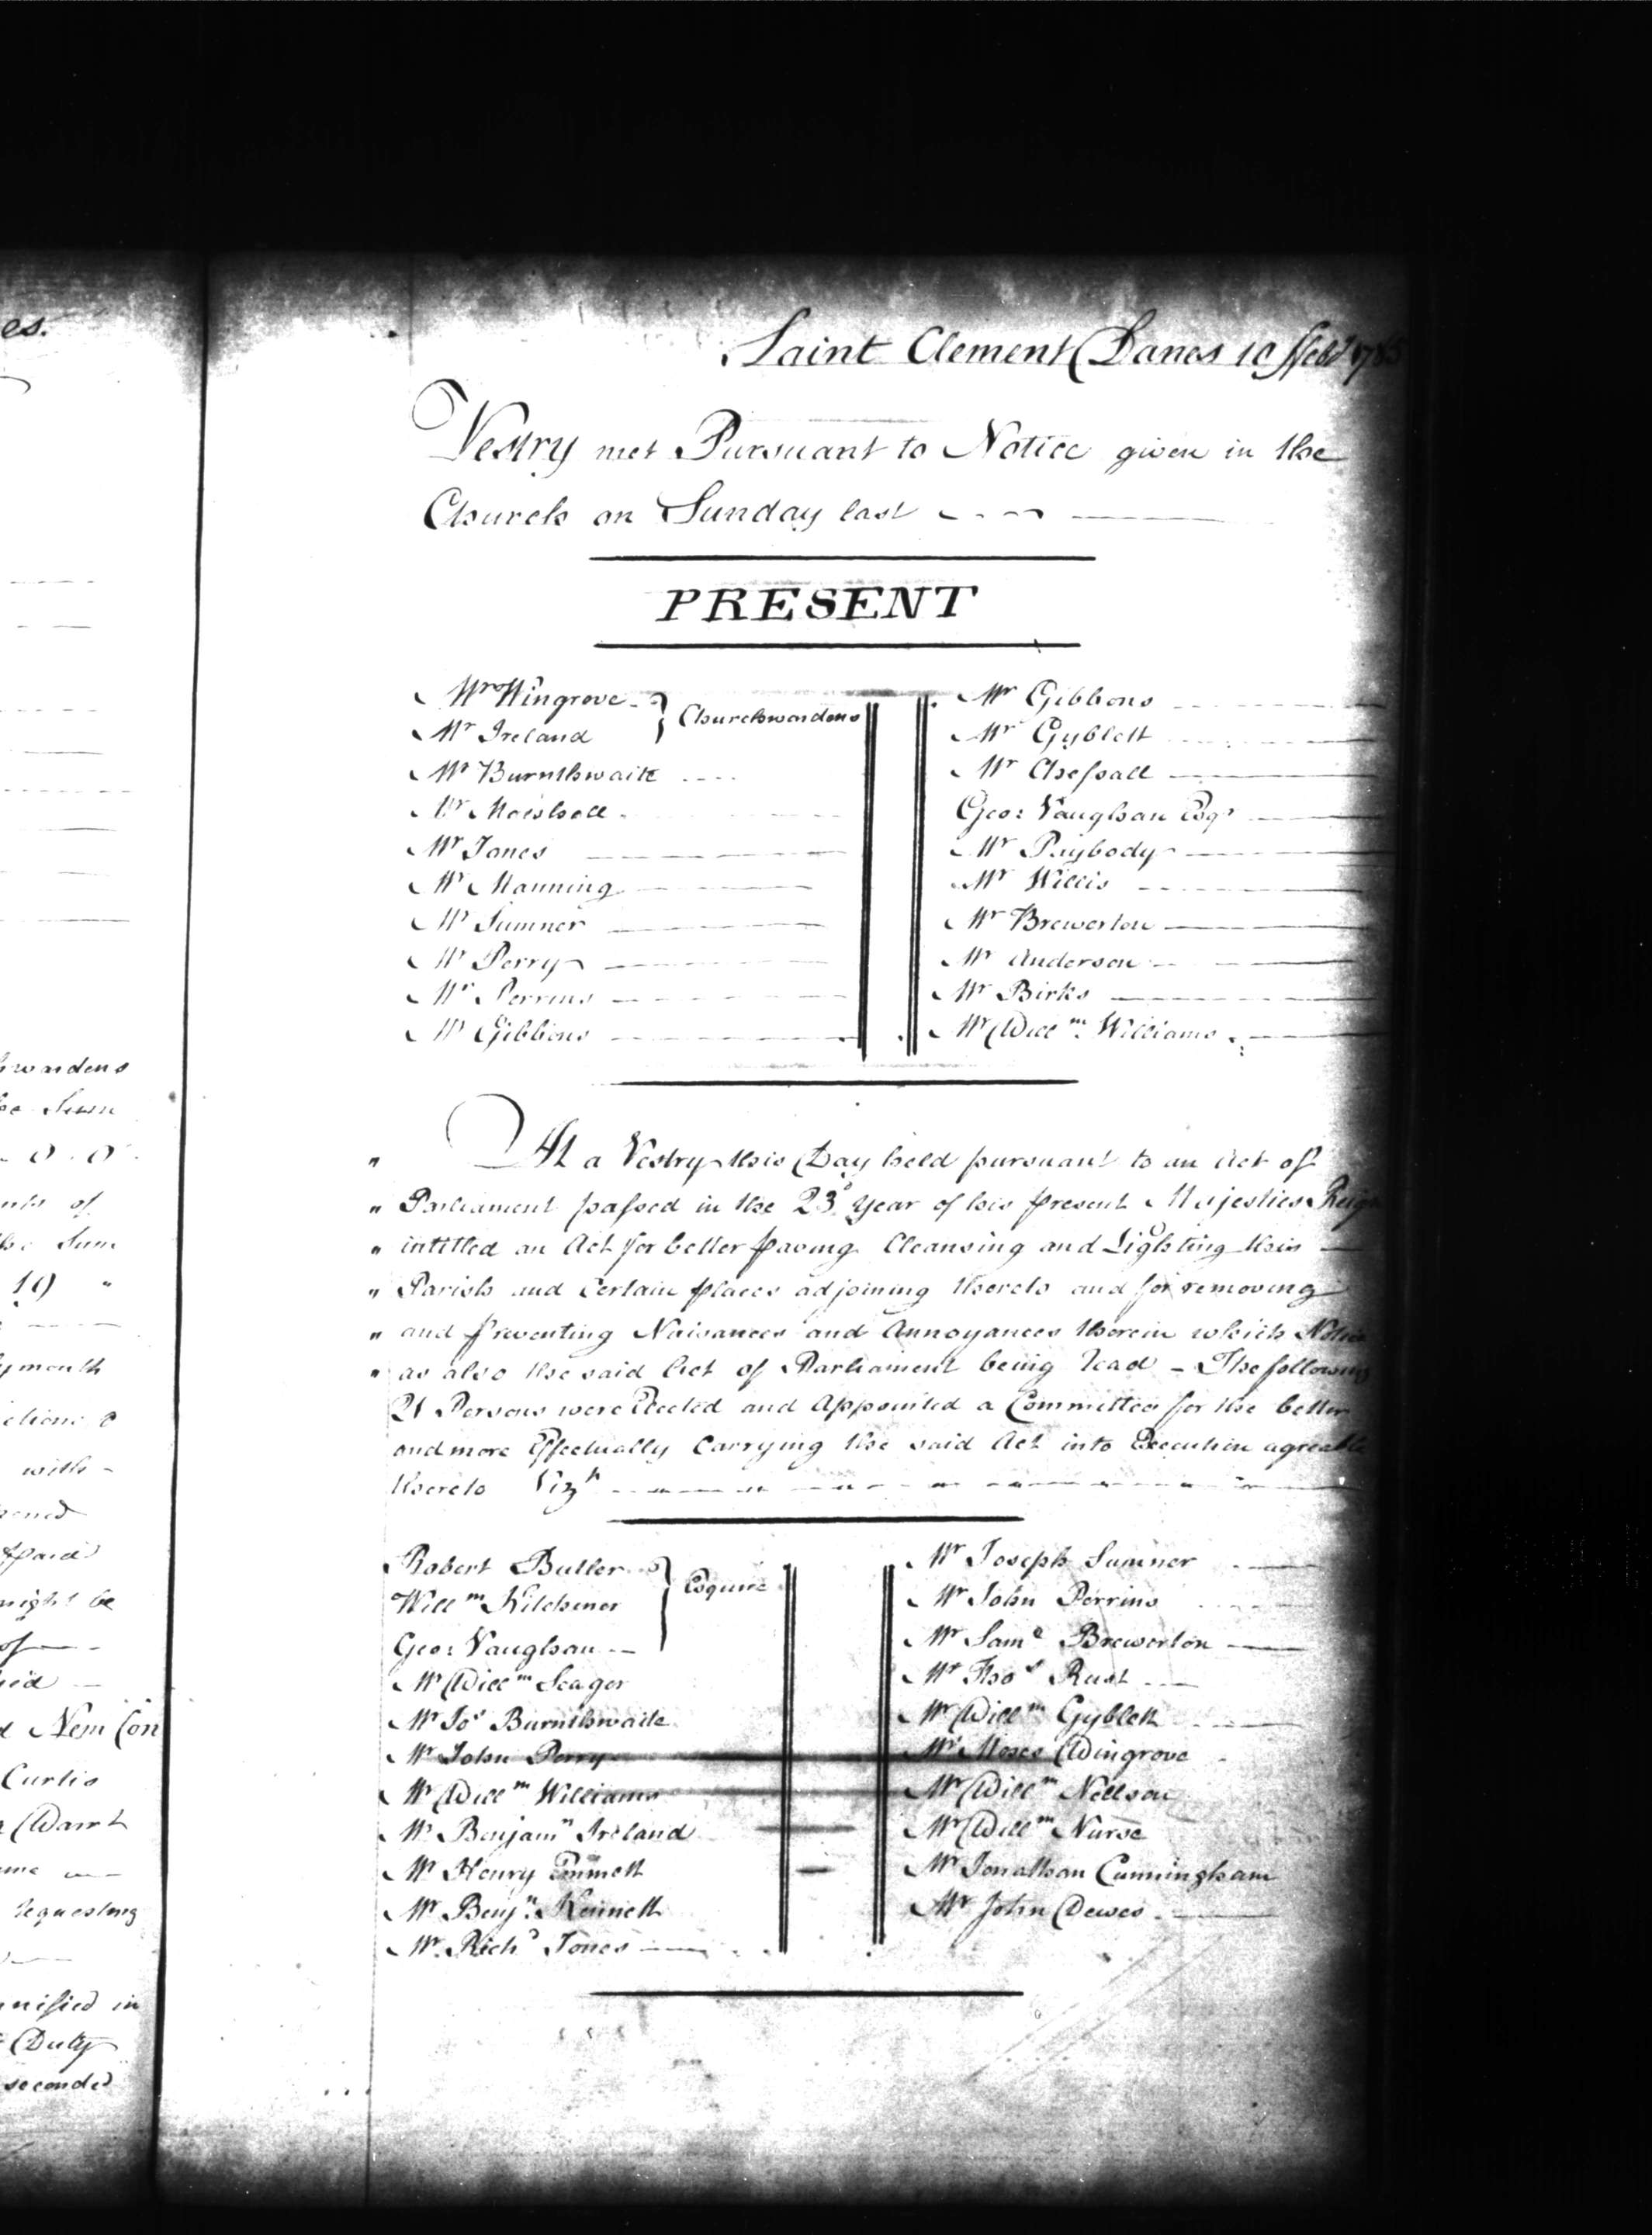 es.
hwardens
he Sum
- 0 . 0
nts of
the Sum
10 "
ymouth
ctions
with -
paid
might be
of
d Nem Con
Curtis
me
requesting
nified in
Duty
seconded
Saint Clement Danes 10 Feby 1785
Vestry met Pursuant to Notice given in the
Church on Sunday last
PRESENT
Mr Wingrove } Churchwardens
Mr Ireland
Mr Burnthwaite
Mr
Mr Jones
Mr Manning
Mr Sumner
Mr Perry
Mr Perrins
Mr Gibbons
Mr Gibbons
Mr Gyblett
Mr Chessall
Geo: Vaughan Esqr
Mr Paybody
Mr Willis
Mr Brewerton
Mr Anderson
Mr Birks
Mr Willm Williams
" At a Vestry this Day held pursuant to an Act of
" Parliament passed in the 23d Year of his present Majesties Reign
" intitled an Act for better paving Cleansing and Lighting this
" Parish and Certain places adjoining thereto and for removing
" and preventing Nuisances and Annoyances therein which Notice
" as also the said Act of Parliament being read - The following
21 Persons were Elected and Appointed a Committee for the better
and more Effectually Carrying the said Act into Execution agreable
thereto Vizt
Robert Butler } Esquire
Willm Kitchiner
Geo: Vaughan
Mr Willm Seager
Mr Jos Burnthwaite
Mr John Perry
Mr Willm Williams
Mr Benjamn Ireland
Mr Henry Emmett
Mr Benjn Kennett
Mr Richd Jones
Mr Joseph Sumner
Mr John Perrins
Mr Saml Brewerton
Mr Thos Rust
Mr Willm Gyblett
Mr Moses Wingrove
Mr Willm Nellson
Mr Willm Nurse
Mr Jonathan Cunningham
Mr John Dewes